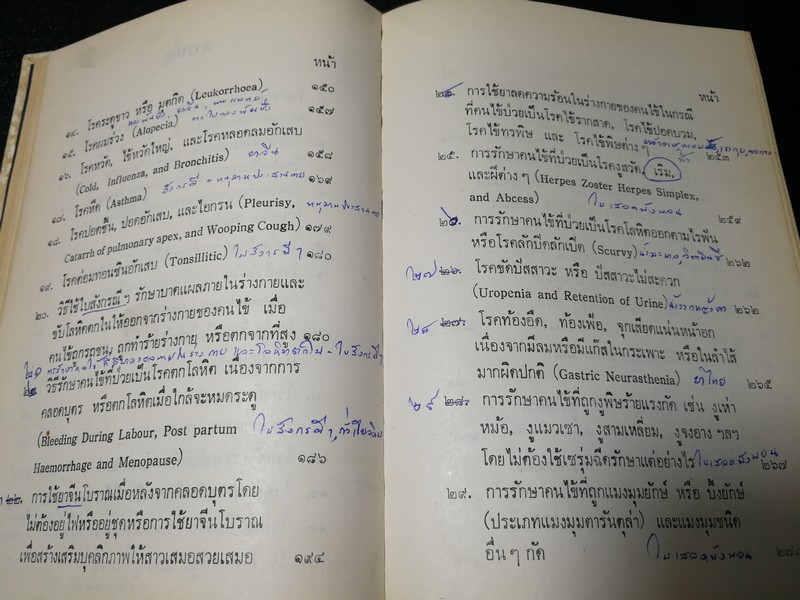 หน้า
๑๔. โรคระดูขาว หรือ มุตกิต (Leukorrhoea) ๑๕๐
๑๕. โรคผมร่วง (Alopecia) ๑๕๗
๑๖. โรคหวัด, ไข้หวัดใหญ่, และโรคหลอดลมอักเสบ
(Cold, Influenza, and Bronchitis) ยาจีน ๑๕๘
๑๗. โรคหืด (Asthma) ๑๖๙
๑๘. โรคปอดชื้น, ปอดอักเสบ, และไอกรน (Pleurisy,
Catarrh of pulmonary apex, and Wooping Cough) ๑๗๙
๑๙. โรคต่อมทอนซินอักเสบ (Tonsillitic) ใบสังกรณี ๆ ๑๘๐
๒๐. วิธีใช้ใบสังกรณี ๆ รักษาบาดแผลภายในร่างกายและ
ขับโลหิตตกในให้ออกจากร่างกายของคนไข้ เมื่อ
คนไข้ถูกรถชน, ถูกทำร้ายร่างกาย, หรือตกจากที่สูง ๑๘๐
วิธีรักษาคนไข้ที่ป่วยเป็นโรคตกโลหิต เนื่องจากการ
คลอดบุตร หรือตกโลหิตเมื่อใกล้จะหมดระดู
(Bleeding During Labour, Post partum ใบสังกรณี ๆ,
Haemorrhage and Menopause) ๑๘๖
๒๒. การใช้ยาจีนโบราณเมื่อหลังจากคลอดบุตรโดย
ไม่ต้องอยู่ไฟหรืออยู่ชุดหรือการใช้ยาจีนโบราณ
เพื่อสร้างเสริมบุคลิกภาพให้สาวเสมอสวยเสมอ ๑๙๔
หน้า
การใช้ยาลดความร้อนในร่างกายของคนไข้ในกรณี
ที่คนไข้ป่วยเป็นโรคไข้รากสาด, โรคไข้ปอดบวม,
โรคไข้ทรพิษ และ โรคไข้พิษต่างๆ ๒๕๓
๒๕. การรักษาคนไข้ที่ป่วยเป็นโรคงูสวัด, เริม,
และฝีต่าง ๆ (Herpes Zoster Herpes Simplex,
and Abcess) ใบเสลดพังพอน ๒๕๙
๒๖. การรักษาคนไข้ที่ป่วยเป็นโรคโลหิตออกตามไรฟัน
หรือโรคลักปิดลักเปิด (Scurvy) ๒๖๒
๒๗ ๒๖. โรคขัดปัสสาวะ หรือ ปัสสาวะไม่สะดวก
(Uropenia and Retention of Urine) ๒๖๒
๒๘ ๒๗. โรคท้องอืด, ท้องเฟ้อ, จุกเสียดแน่นหน้าอก
เนื่องจากมีลมหรือมีแก๊สในกระเพาะ หรือในลำไส้
มากผิดปกติ (Gastric Neurasthenia) ยาไทย ๒๖๕
๒๙ ๒๘. การรักษาคนไข้ที่ถูกงูพิษร้ายแรงกัด เช่น งูเห่า
หม้อ, งูแมวเซา, งูสามเหลี่ยม, งูจงอาง ฯลฯ
โดยไม่ต้องใช้เซรุ่มฉีดรักษาแต่อย่างไร ใบเสลดพังพอน ๒๖๗
๒๙. การรักษาคนไข้ที่ถูกแมงมุมยักษ์ หรือ บึ้งยักษ์
(ประเภทแมงมุมตารันตุล่า) และแมงมุมชนิด
อื่น ๆ กัด ใบเสลดพังพอน